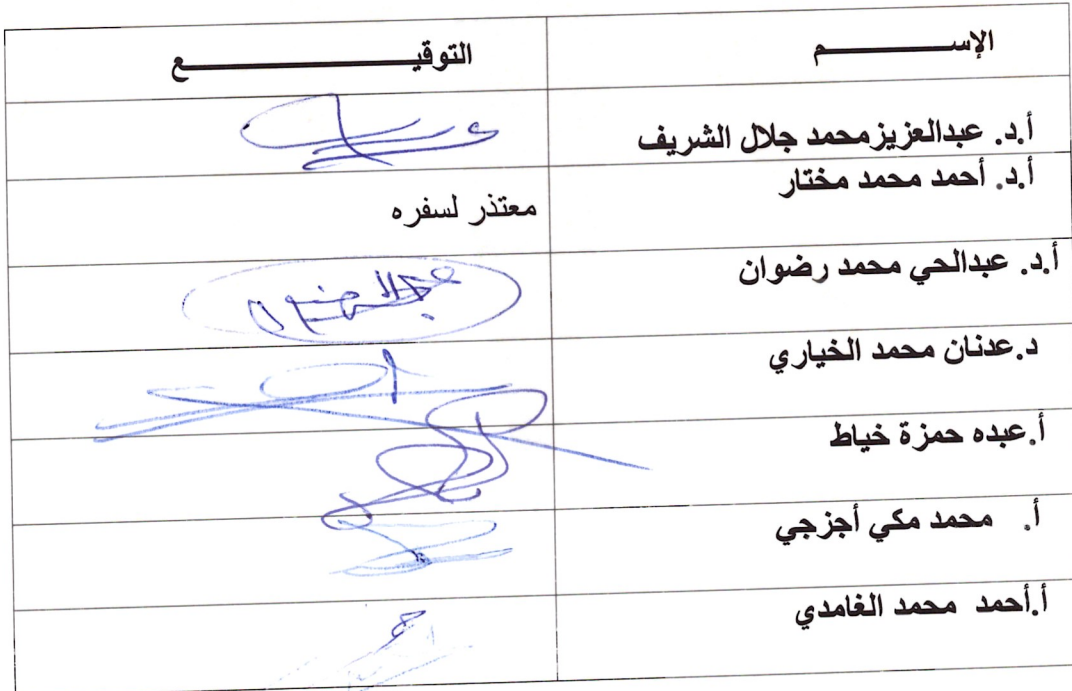 الإســـــــــــم
التوقيـــــــــــــــــــــع
أ.د. عبدالعزيزمحمد جلال الشريف
أ.د. أحمد محمد مختار
معتذر لسفره
أ.د. عبدالحي محمد رضوان
د.عدنان محمد الخياري
أ.عبده حمزة خياط
أ. محمد مكي أجزجي
أ.أحمد محمد الغامدي